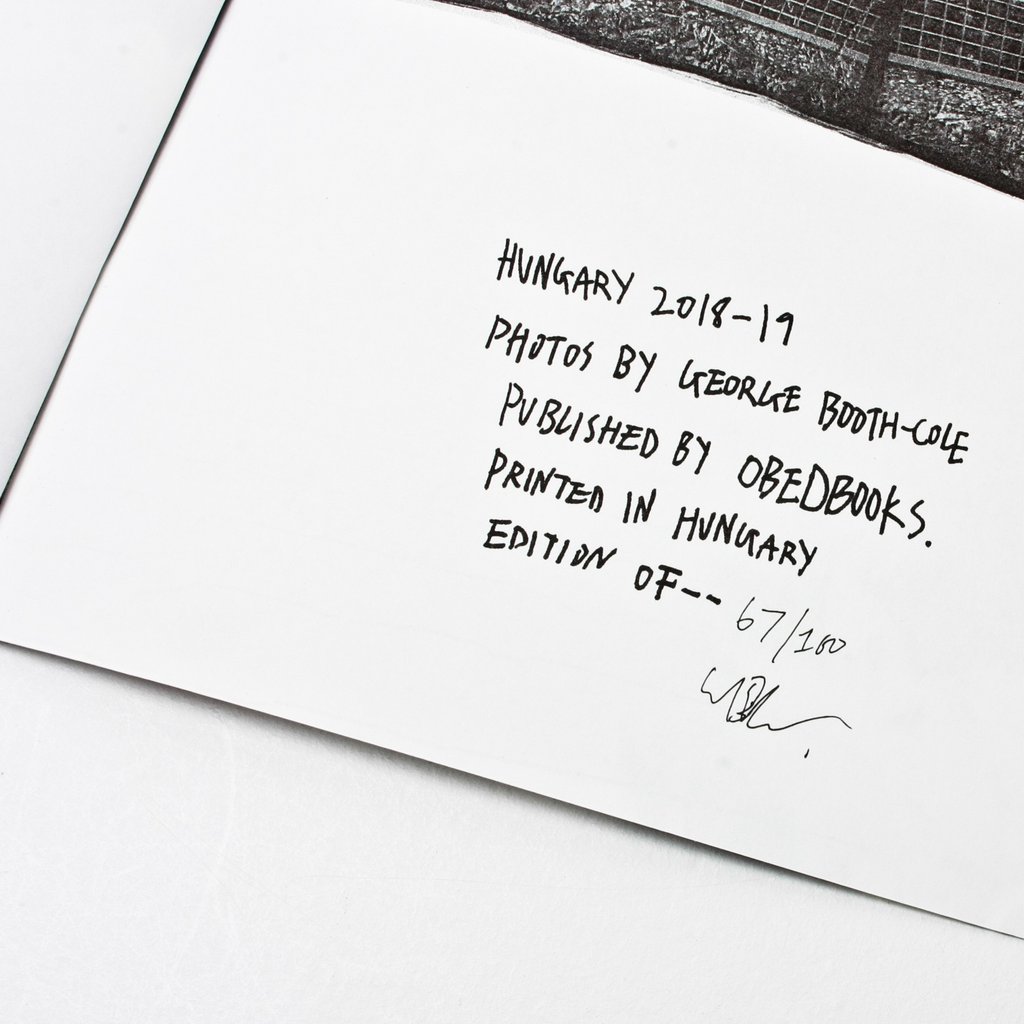 HUNGARY 2018-19
PHOTOS BY GEORGE BOOTH-COLE
PUBLISHED BY OBEDBOOKS.
PRINTED IN HUNGARY
EDITION OF-- 67/100